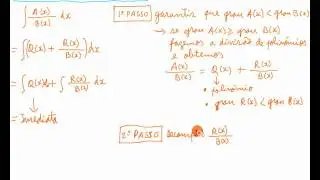 ∫ A(x)/B(x) dx
= ∫(Q(x) + R(x)/B(x)) dx
= ∫Q(x)dx + ∫ R(x)/B(x) dx
= Imediata
1º PASSO garantir que grau A(x) < grau B(x)
→ se grau A(x) ≥ grau B(x)
fazemos a divisão de polinômios
e obtemos
A(x)/B(x) = Q(x) + R(x)/B(x)
• polinômio
• grau R(x) < grau B(x)
2º PASSO R(x)/B(x)